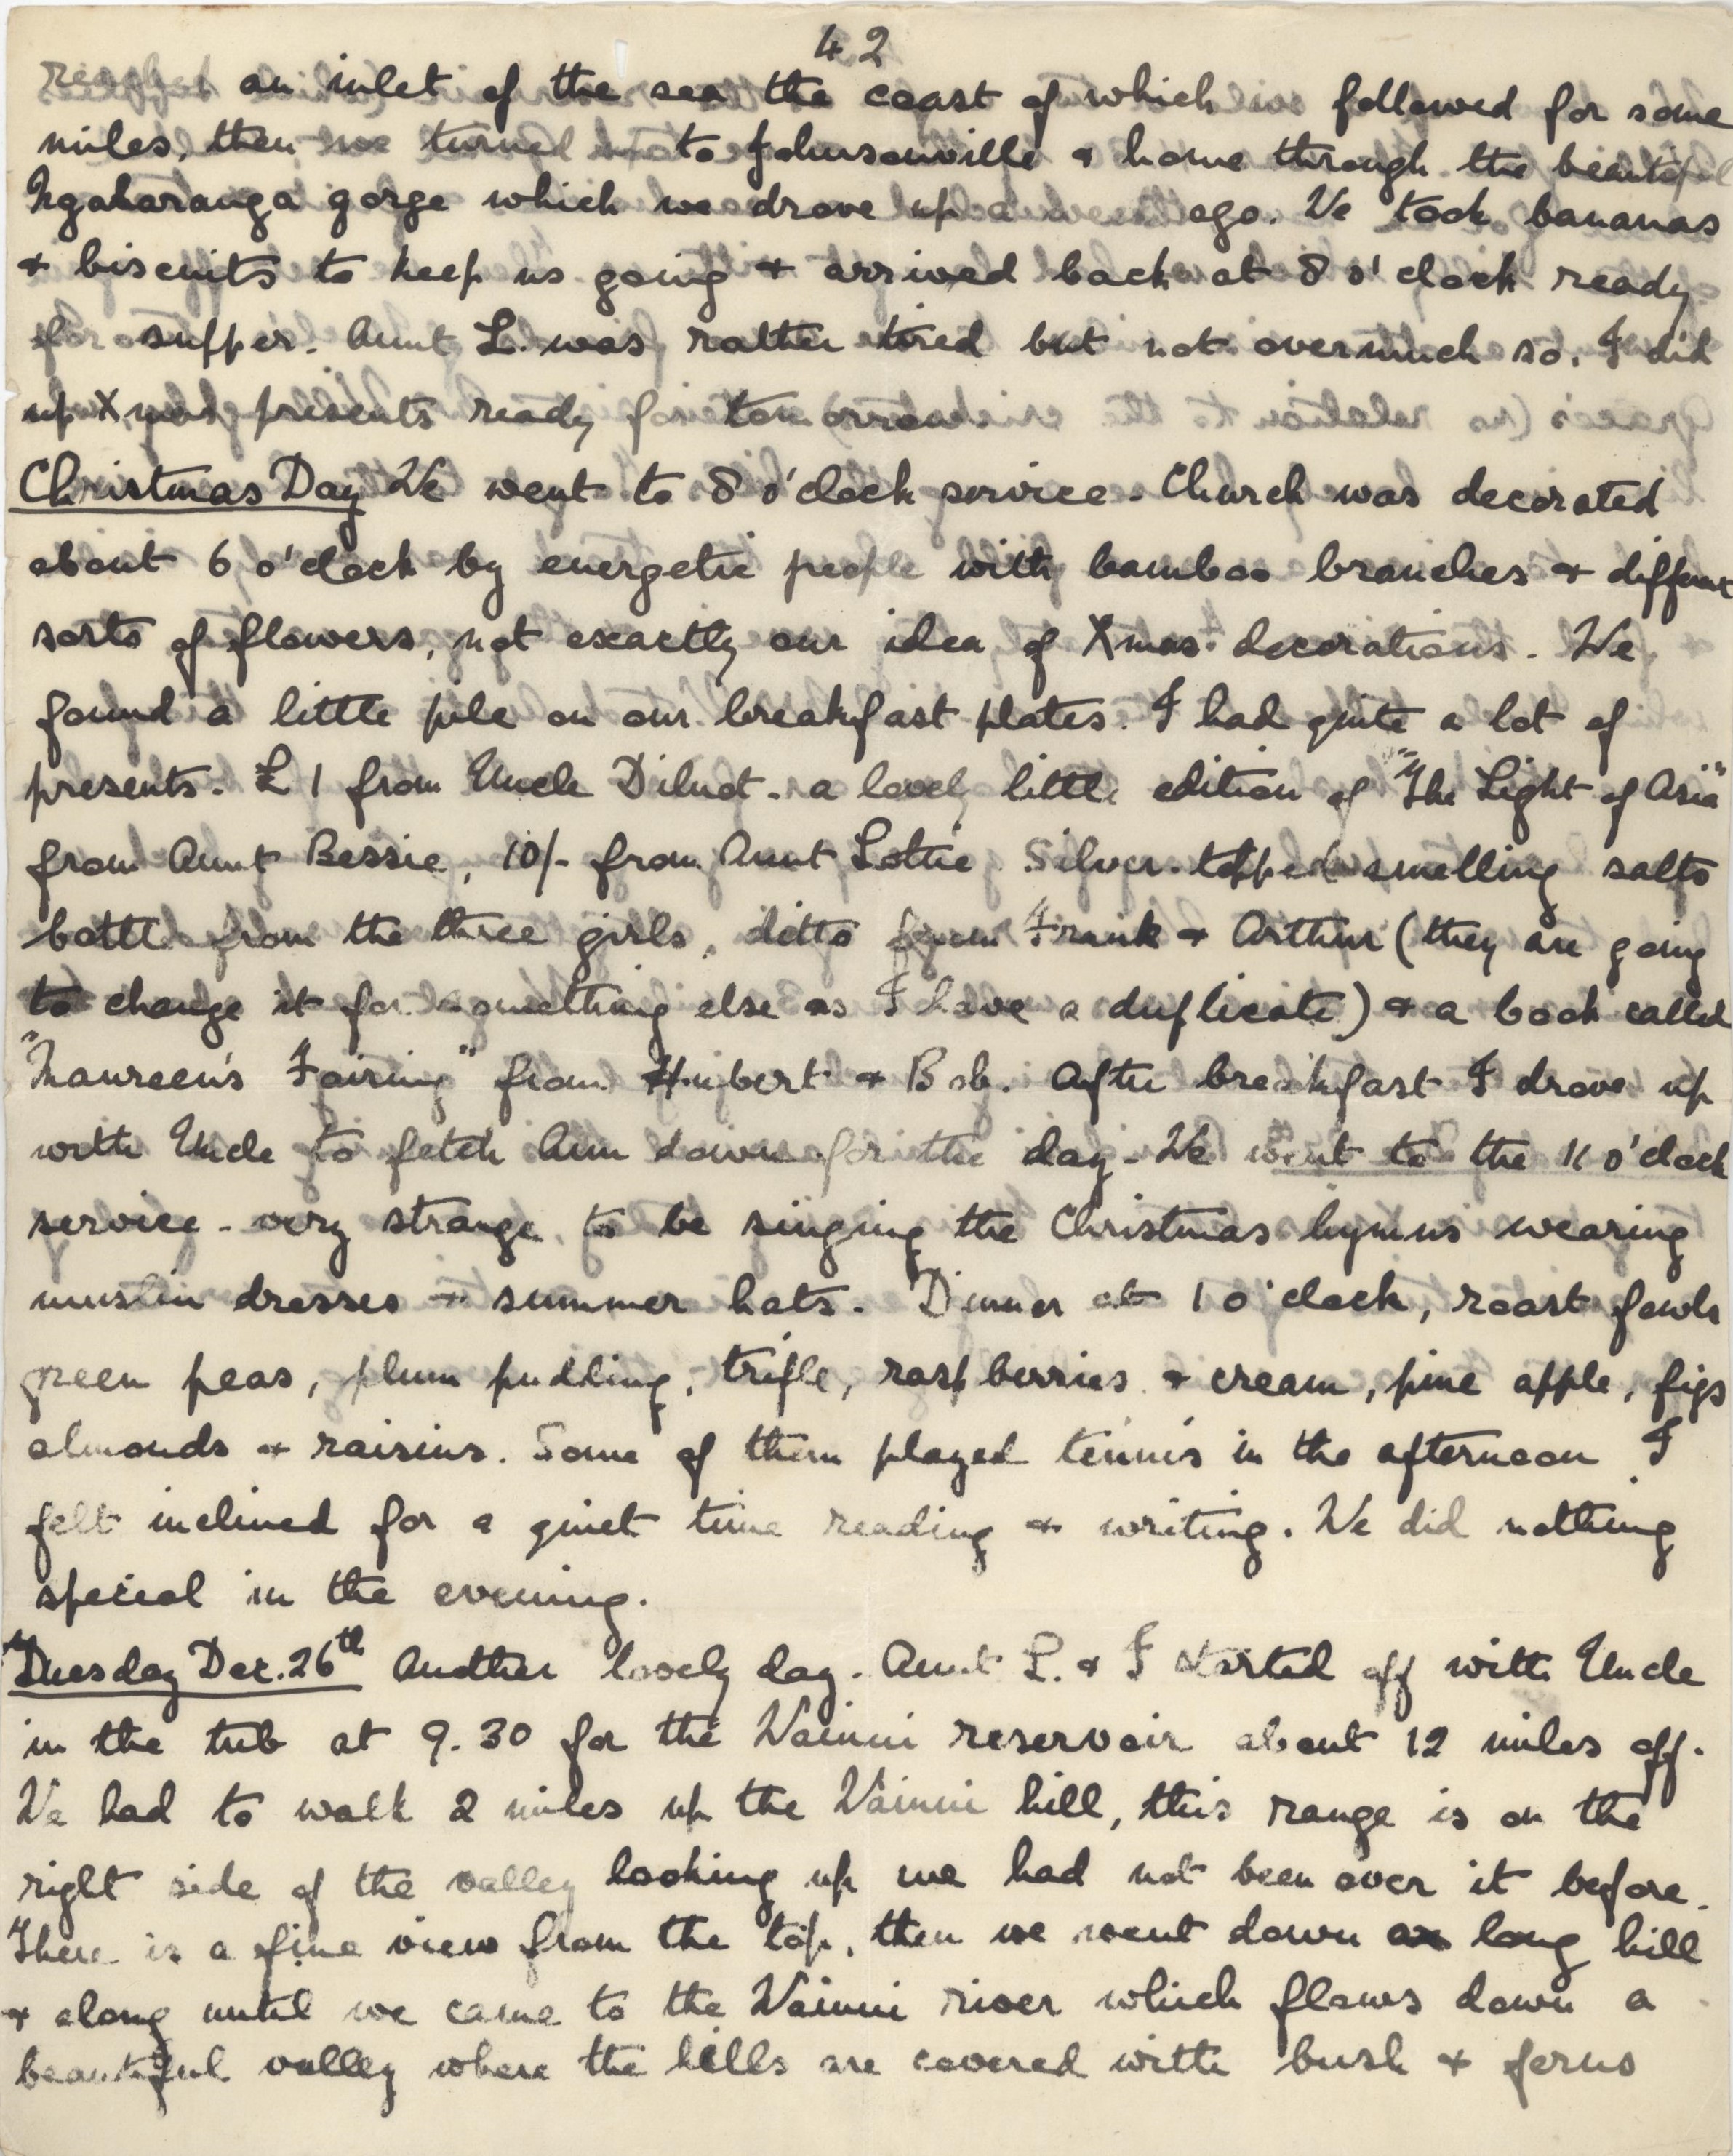 42
reached an inlet of the sea the coast of which we followed for some
miles, then we turned to Johnsonville & home through the beautiful
Ngaharanga gorge which we drove up a week ago. We took bananas
& biscuits to keep us going & arrived back at 8 o'clock ready
for supper. Aunt L. was rather tired but not overmuch so. I did
up Xmas presents ready for tomorrow
Christmas Day We went to 8 o'clock service. Church was decorated
about 6 o'clock by energetic people with bamboo branches & different
sorts of flowers, not exactly our idea of Xmas decorations. We
found a little pile on our breakfast plates. I had quite a lot of
presents. £1 from Uncle Dilnot. a lovely little edition of "The Light of Asia"
from Aunt Bessie, 10/- from Aunt Lottie Silver. topped smelling salts
bottle from the three girls, ditto from Frank & Arthur (they are going
to change it for something else as I have a duplicate) & a book called
"Maureen's Fairing" from Hubert & Bob. After breakfast I drove up
with Uncle to fetch Ann down for the day. We went to the 11 o'clock
service - very strange to be singing the Christmas hymns wearing
muslin dresses & summer hats. Dinner at 1 o'clock, roast fowls
green peas, plum pudding, trifle, raspberries & cream, pine apple, figs
almonds & raisins. Some of them played tennis in the afternoon I
felt inclined for a quiet time reading & writing. We did nothing
special in the evening.
Tuesday Dec. 26th Another lovely day. Aunt L. & I started off with Uncle
in the tub at 9.30 for the Wainui reservoir about 12 miles off.
We had to walk 2 miles up the Wainui hill, this range is on the
right side of the valley looking up we had not been over it before.
There is a fine view from the top, then we went down a long hill
& along until we came to the Wainui river which flows down a
beautiful valley where the hills are covered with bush & ferns